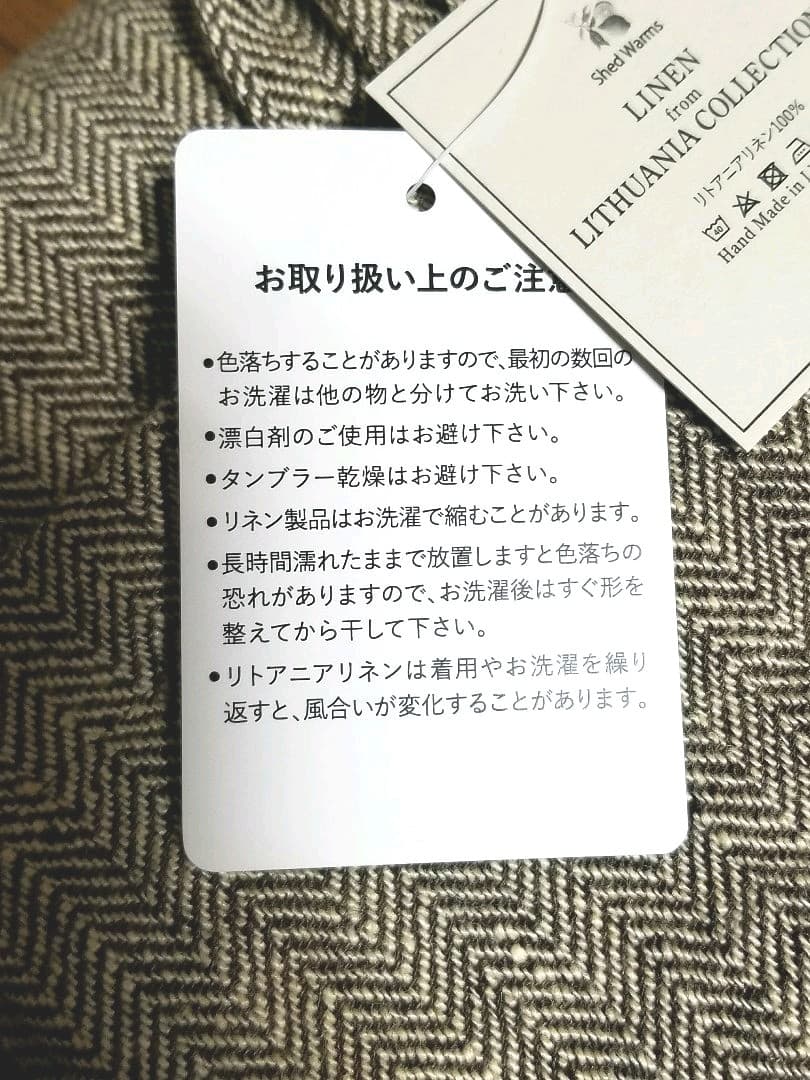 Shed Warms
LINEN
from
LITHUANIA COLLECTION
リトアニアリネン100%
40
Hand Made in
お取り扱い上のご注意
●色落ちすることがありますので、最初の数回の
お洗濯は他の物と分けてお洗い下さい。
●漂白剤のご使用はお避け下さい。
●タンブラー乾燥はお避け下さい。
●リネン製品はお洗濯で縮むことがあります。
●長時間濡れたままで放置しますと色落ちの
恐れがありますので、お洗濯後はすぐ形を
整えてから干して下さい。
●リトアニアリネンは着用やお洗濯を繰り
返すと、風合いが変化することがあります。